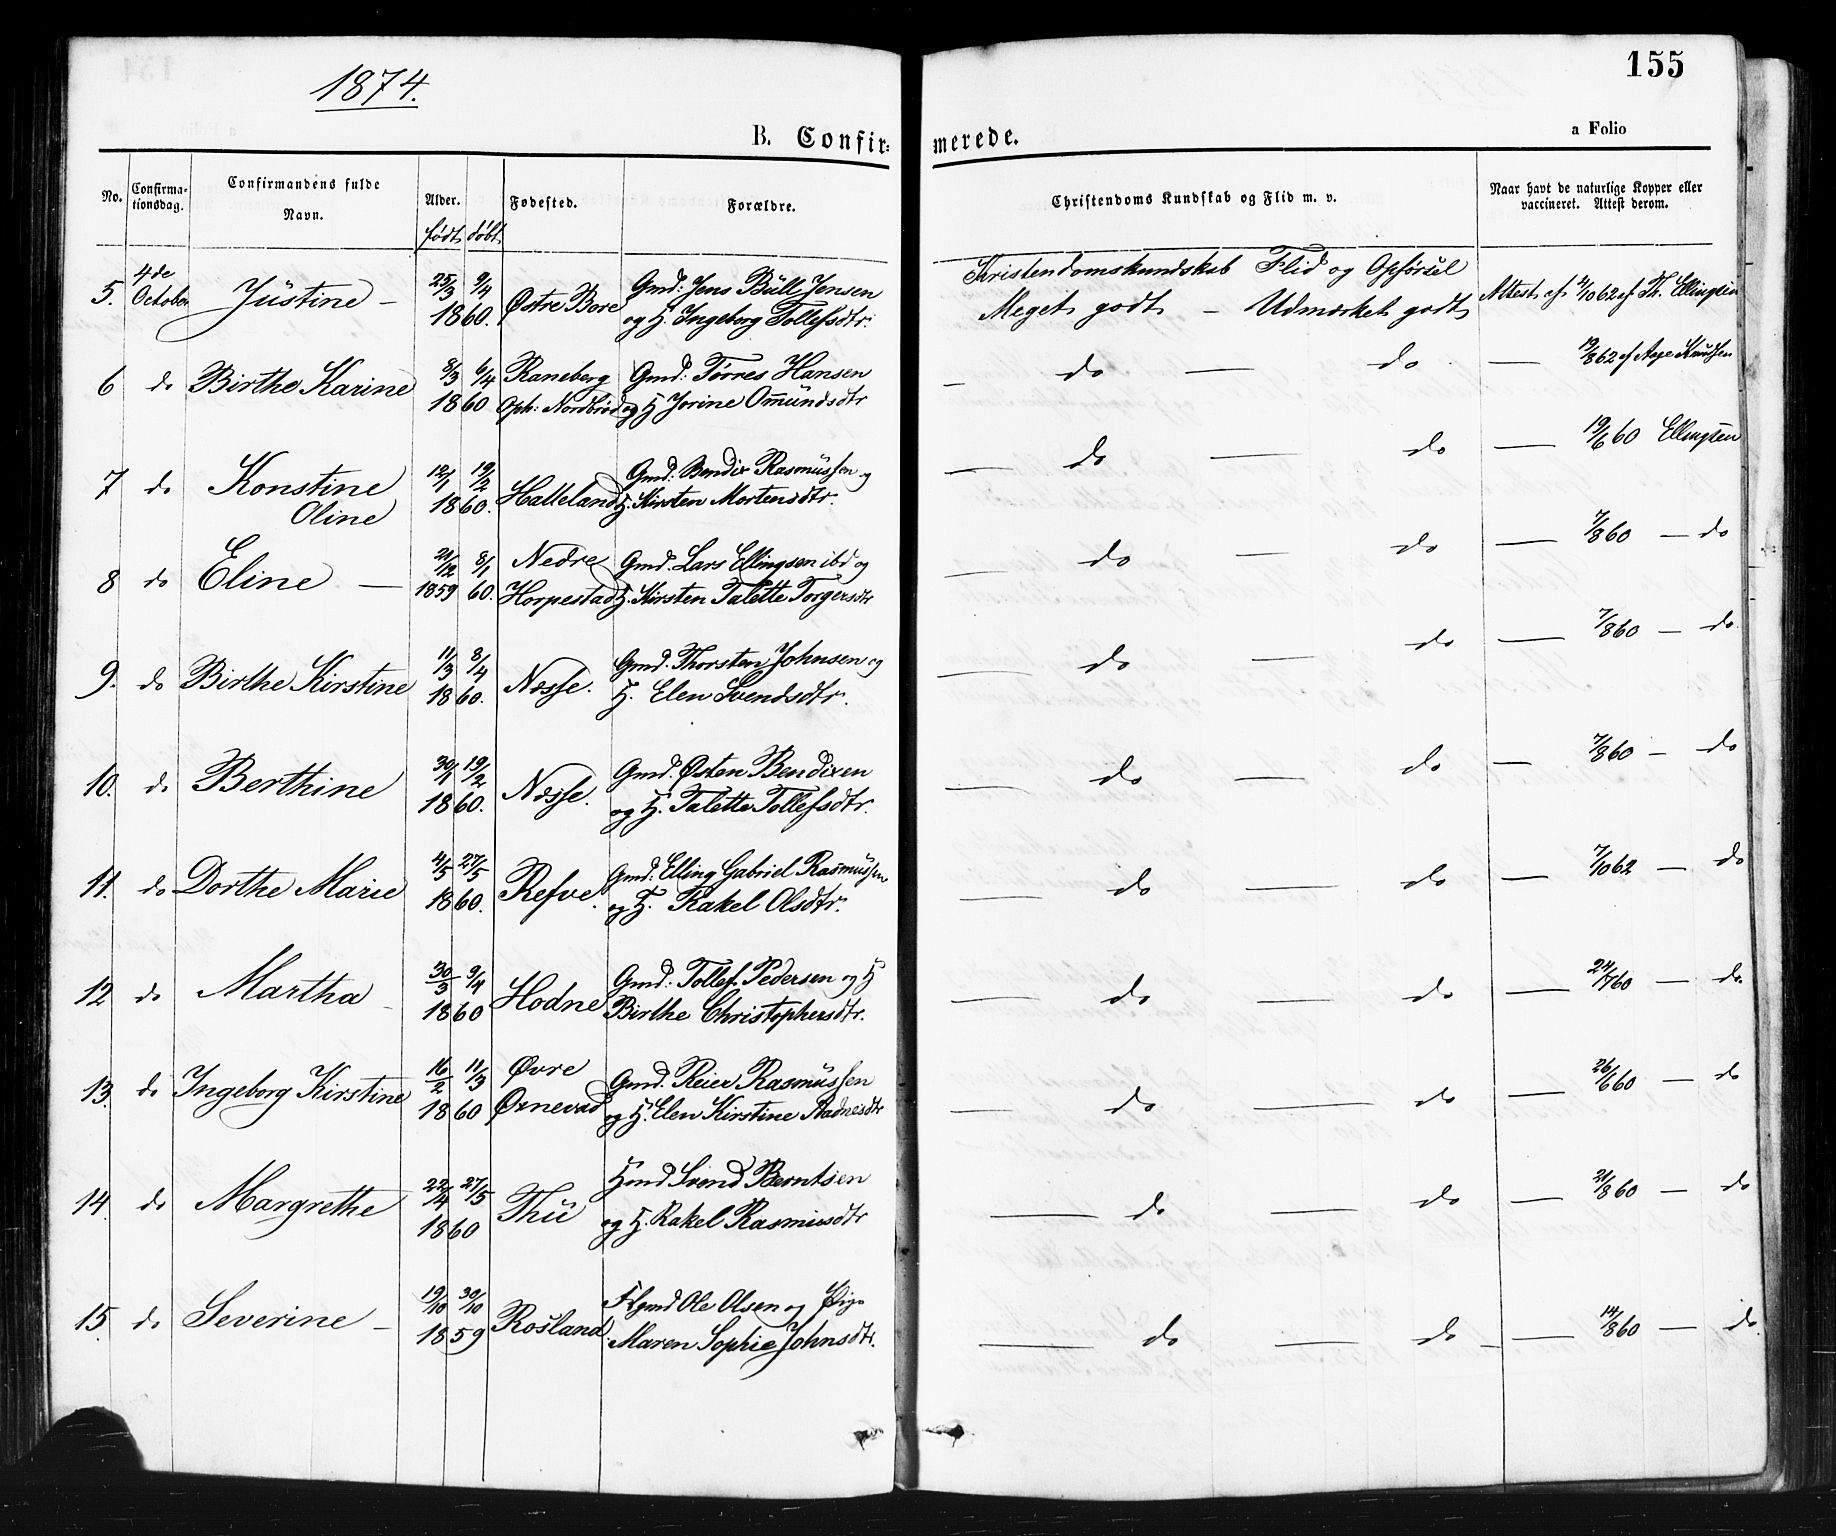 1874.
155
B. Confir-
merede.
a Folio
No.
Confirma-
tionsdag.
Confirmandens fulde
Navn.
Alder.
født døbt
Fødested.
Forældre.
Christendoms Kundskab og Flid m. v.
Naar havt de naturlige Kopper eller
vaccineret. Attest derom.
5. 4de October Jüstine – 25/3 9/4 1860. Østre Bore Gmd: Jens Büll Jensen
og H. Ingeborg Tollefsdtr.
Kristendomskundskab Flid og Opførsel
Meget godt – Udmærket godt Attest af /10 62 af Th. Ellingsen
6 do Birthe Karine 8/3 6/4 1860 Raneberg Gmd: Tørres Hansen
Oph: Nordbrød og H Jorine Omundsdtr
– do — do — 19/8 62 af Aage Knudsen
7 do Konstine 12/1 19/2 1860. Halleland Gmd: Bendix Rasmüssen og
Oline H. Kirsten Mortensdtr.
— do — do — 19/6 60 Ellingsen
8 do Eline — 21/12 8/1 1859 60. Nedre Gmd. Lars Ellingsen ibd og
Horpestad H. Kirsten Talette Torgersdtr
— do — do — 7/8 60 — do
9. do Birthe Kirstine 11/3 8/4 1860. Næsse. Gmd. Thorsten Johnsen og
H. Elen Svendsdtr.
— do — do — 7/8 60 — do
10. do Berthine 30/1 19/2 1860. Næsse. Gmd. Østen Bendixen
og H. Talette Tollefsdtr.
— do — do — 7/8 60 — do
11. do Dorthe Marie 4/5 27/5 1860. Refve. Gmd: Elling Gabriel Rasmüssen
og H. Rakel Olsdtr.
— do — do — 7/10 62 — do
12 do Martha – 30/3 9/4 1860 Hodne Gmd: Tollef Pedersen og H
Birthe Christophersdtr.
— do — do — 24/7 60 — do.
13. do Ingeborg Kirstine 16/2 11/3 1860 Øvre Gmd. Reier Rasmüssen
Ørnevad og H. Elen Kirstine Aadnesdtr
— do — do — 26/6 60 — do
14. do Margrethe 22/4 27/5 1860 Thü Hmd Svend Berntsen
og H. Rakel Rasmusdtr
— do — do — 21/8 60 — do
15. do Severine – 19/10 30/10 1859 Rosland Ole Olsen og Pige
Maren Sophie Johnsdtr.
— do — do — 14/8 60 — do